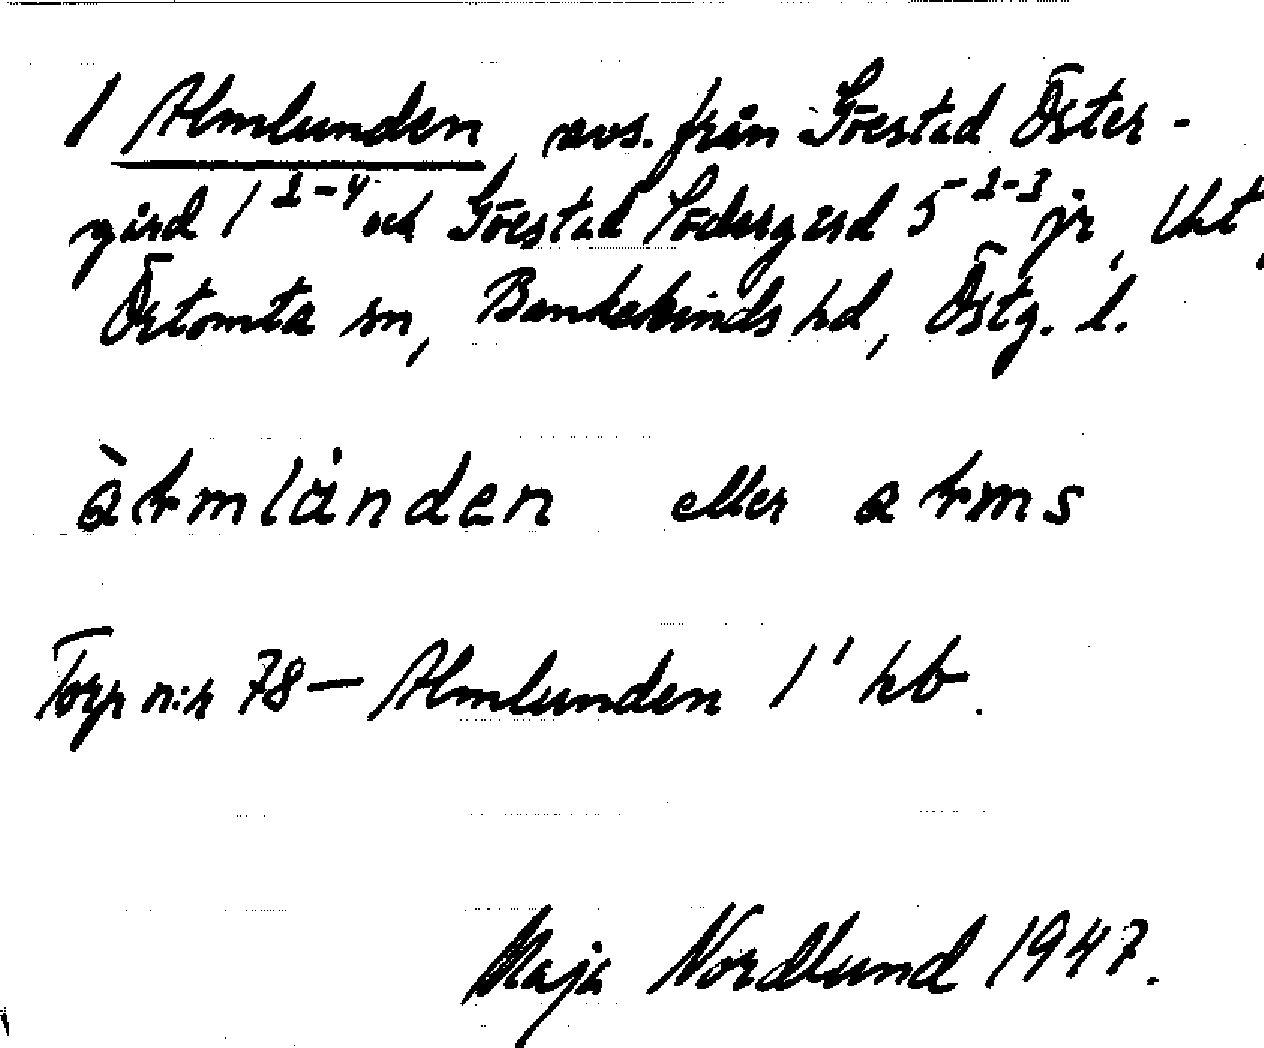 1 Almlunden, avs. från Göestad Öster-
gård 1 2-4 och Göestad Södergård 5 -2-3 jr, Uht,
Örtomta sn, Bankekinds hd, Östg. l.
eller
Torp n:r 78 — Almlunden 1' hb.
Maja Nordlund 1947.